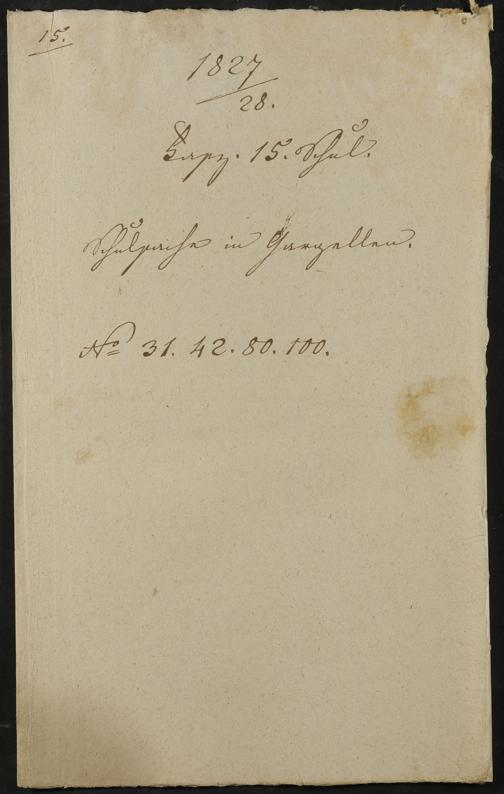 15.
1827
28.
Fasz. 15. Schul.
Schulsache in Gargellen.
No 31. 42. 80. 100.